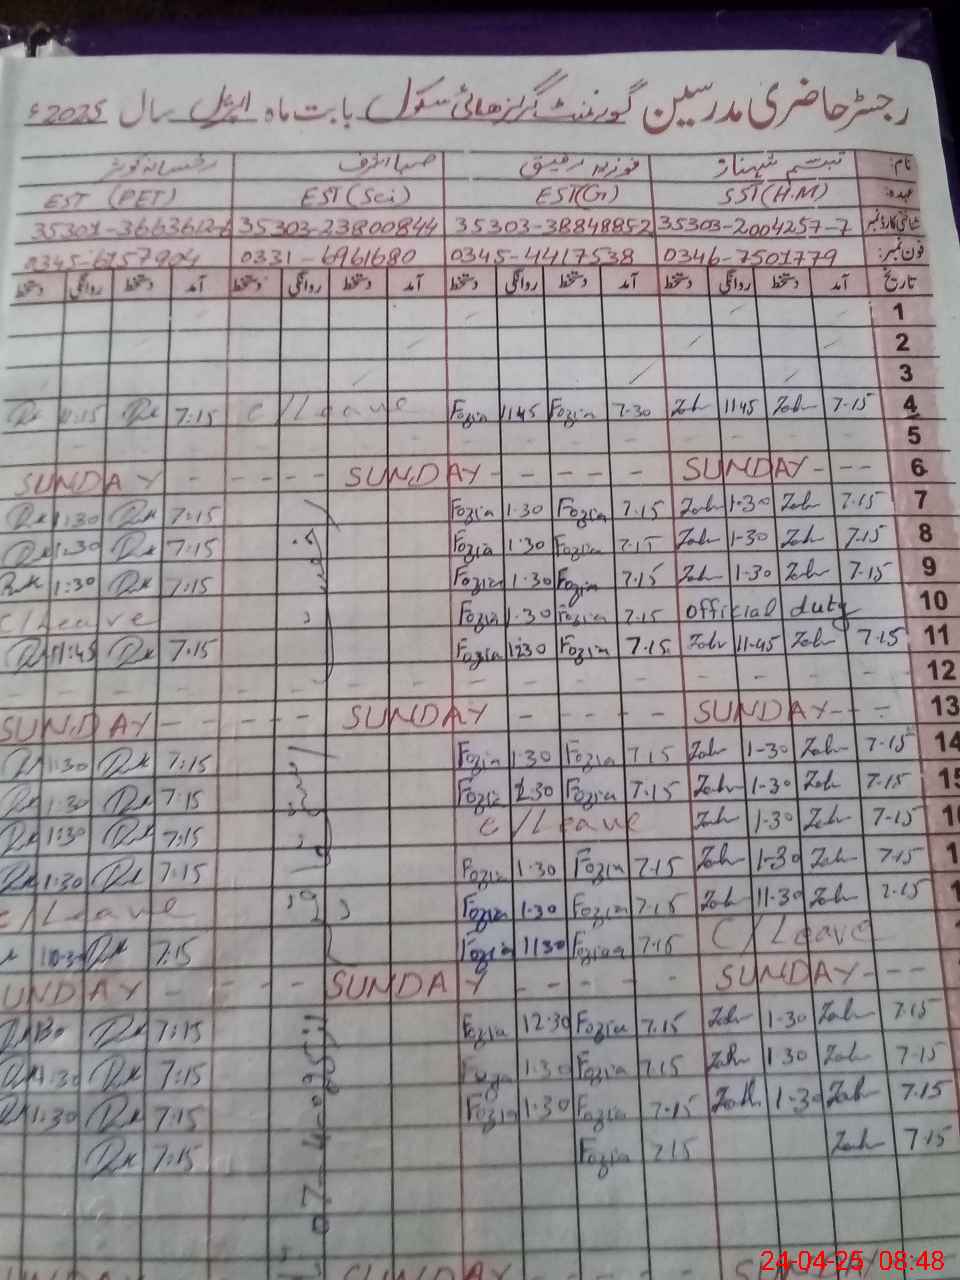 رجسٹر حاضری مدرسین گورنمنٹ گرلز ھائی سکول بابت ماہ اپریل سال 2025ء
نام: تبسم شہناز فوزیہ رفیق صبا اشرف رخسانہ کوثر
عہدہ: SST(H.M) EST(G) EST(Sci) EST (PET)
شناختی کارڈ نمبر 35303-2004257-7 35303-3884885-2 35303-23800844 35301-3663612-6
فون نمبر: 0346-7501779 0345-4417538 0331-6961680 0345-6157904
تاریخ آمد دستخط روانگی دستخط آمد دستخط روانگی دستخط آمد دستخط روانگی دستخط آمد دستخط روانگی دستخط
1
2
3
4 7-15 Zah 1145 Zah 7-30 Fozia 1145 Fozia C/Leave 7-15
5
6 SUNDAY - - - SUNDAY - - - - SUNDAY - - - -
7 7-15 Zah 1-30 Zah 7-15 Fozia 1-30 Fozia 7:15 1:30
8 7-15 Zah 1-30 Zah 7-15 Fozia 1-30 Fozia 7:15 1:30
9 7-15 Zah 1-30 Zah 7-15 Fozia 1-30 Fozia 7:15 1:30
10 official duty 7-15 Fozia 1-30 Fozia C/Leave
11 7-15 Zah 11-45 Zah 7-15 Fozia Fozia 7:15 11:45
12
13 SUNDAY - - - SUNDAY - - - - SUNDAY - - - -
14 7-15 Zah 1-30 Zah 7-15 Fozia 1-30 Fozia 7:15 1:30
15 7-15 Zah 1-30 Zah 7-15 Fozia 1-30 Fozia 7:15 1:30
7-15 Zah 1-30 Zah C/Leave 7:15 1:30
7-15 Zah 1-30 Zah 7-15 Fozia 1-30 Fozia 7:15 1:30
7-15 Zah 11-30 Zah 7-15 Fozia 1-30 Fozia C/Leave
C/Leave 7-15 Fozia 1130 Fozia 7:15
SUNDAY - - - SUNDAY - - - - UNDAY - - - -
7-15 Zah 1-30 Zah 7-15 Fozia 12-30 Fozia 7:15
7-15 Zah 1-30 Zah 7-15 Fozia 1-30 7:15 1:30
7-15 Zah 1-30 Zah 7-15 Fozia 1-30 Fozia 7:15 1:30
7-15 Zah 7-15 Fozia 7:15
SUNDAY
24-04-25 08:48